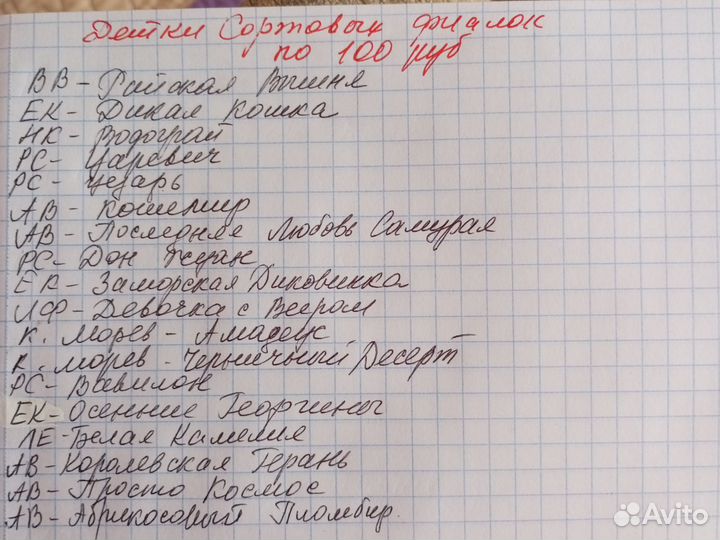 Детки Сортовых фиалок
по 100 руб
ВВ - Райская Вишня
ЕК - Дикая кошка
НК - Водограй
РС - Царевич
РС - Цезарь
АВ - Кошемир
АВ - Последняя Любовь Самурая
РС - Дон Жуан
ЕК - Заморская Диковинка
ЛФ - Девочка с Веером
К. Морев - Амадеус
К. Морев - Черничный Десерт
РС - Вавилон
ЕК - Осенние Георгины
ЛЕ - Белая Камелия
АВ - Королевская Герань
АВ - Просто Космос
АВ - Абрикосовый Пломбир.
Avito